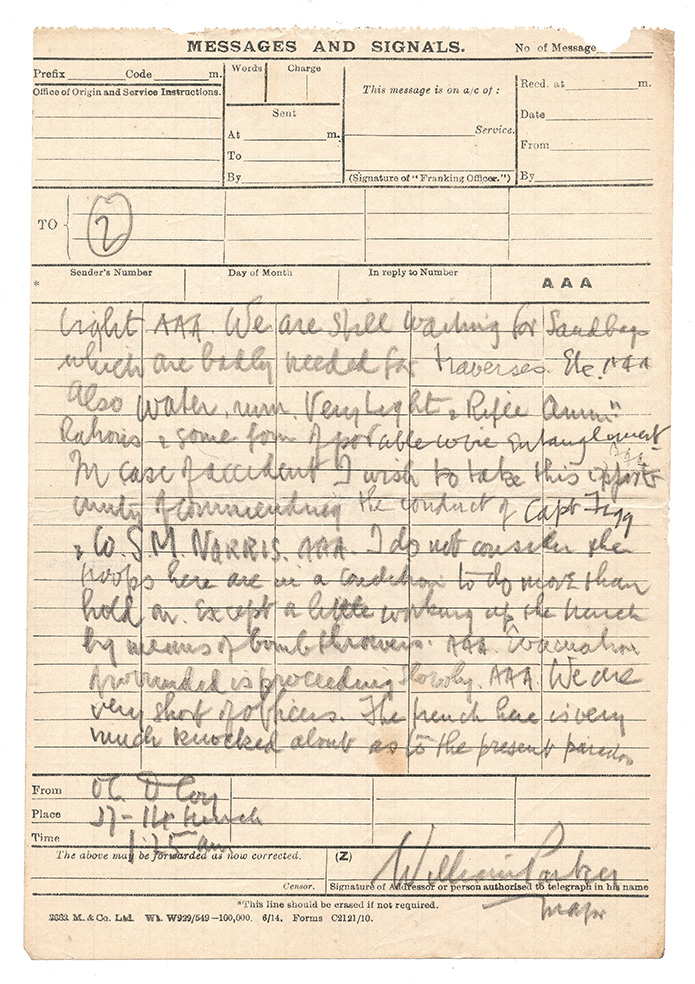 MESSAGES AND SIGNALS.
No of Message
Prefix Code m.
Office of Origin and Service Instructions.
Words Charge
Sent
At m.
To
By
This message is on a/c of :
Service.
(Signature of "Franking Officer.")
Recd. at m.
Date
From
By
TO
2
* Sender's Number
Day of Month
In reply to Number
AAA
light AAA. We are still waiting for Sandbags
which are badly needed for traverses. Etc. AAA
Also water, rum, Very Light & Rifle Ammn
Rations & some form of portable wire entanglement
AAA
In case of accident I wish to take this opport
unity of commending the conduct of Capt
& Co. S. M. NORRIS. AAA. I do not consider the
troops here are in a condition to do more than
hold on. Except a little working up the trench
by means of bomb throwers. AAA. Evacuation
of wounded is proceeding slowly. AAA. We are
very short of officers. The trench here is very
much knocked about as to the present parados
From OC D Coy
Place 37-14 trench
Time 1.35 am
The above may be forwarded as now corrected.
(Z)
William Parker
Censor.
Signature of Addressor or person authorised to telegraph in his name
Major
*This line should be erased if not required.
M. & Co. Ltd. Wt. W929/549-100,000. 6/14. Forms C2121/10.